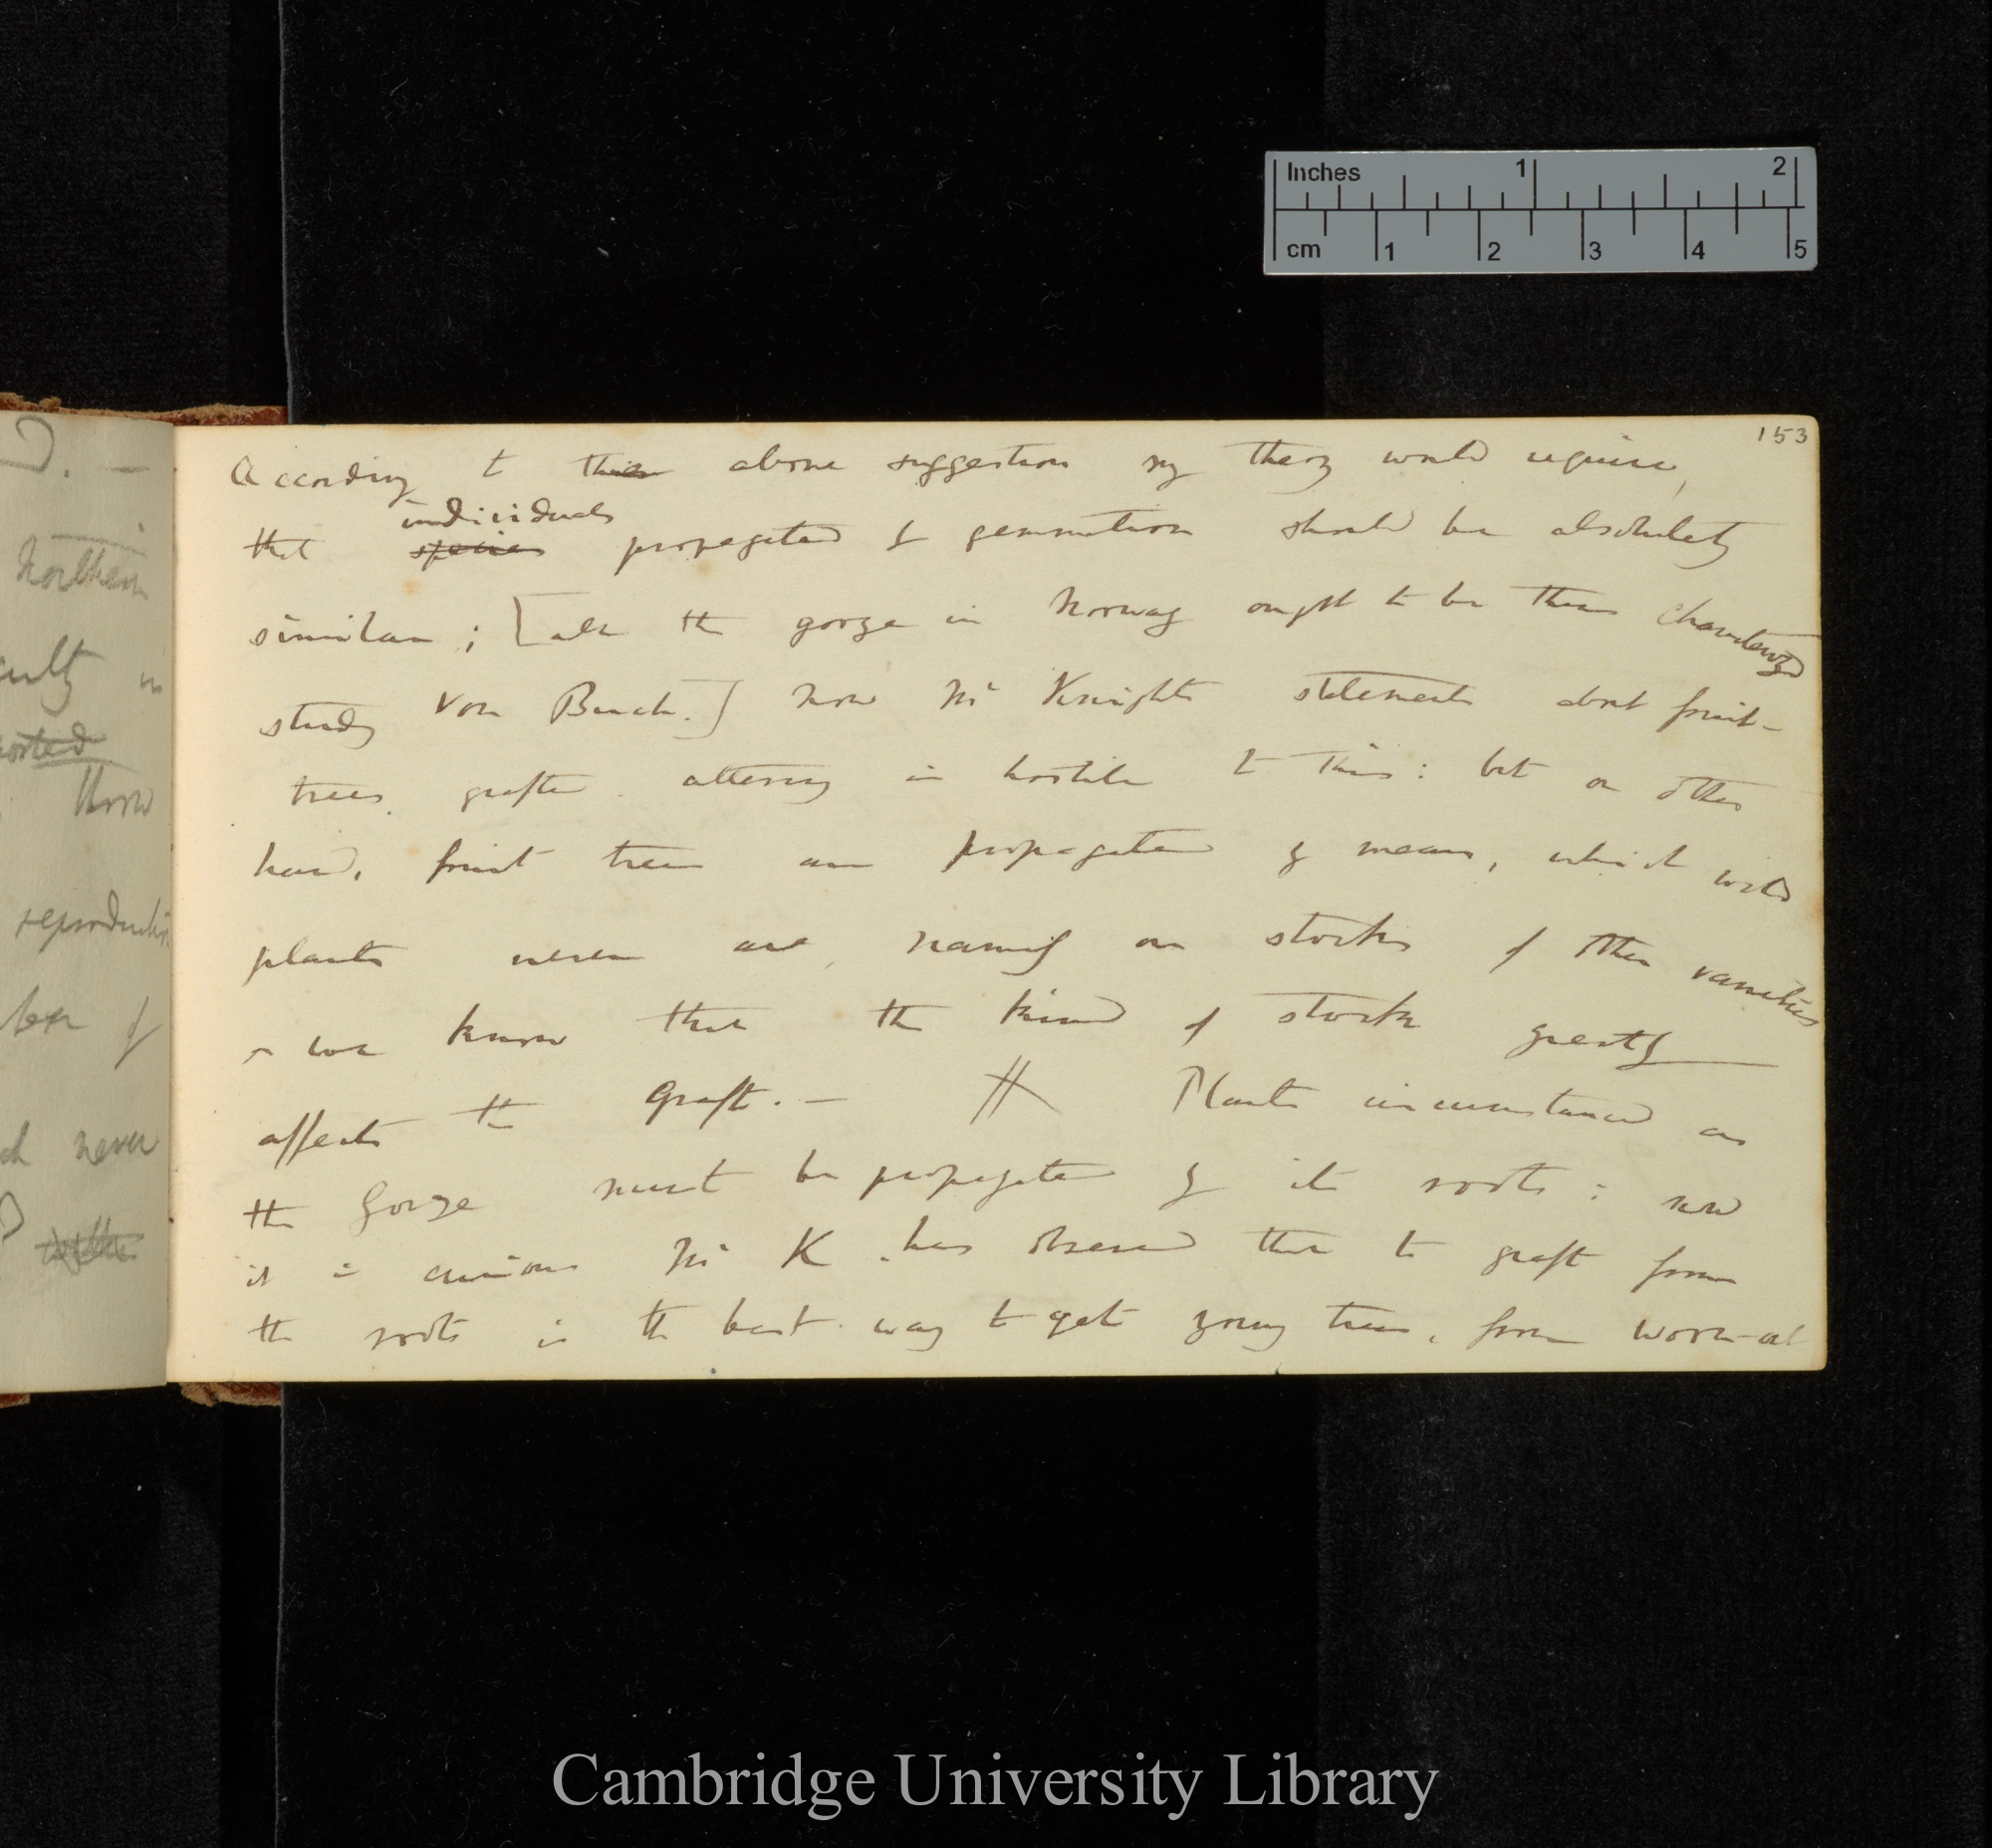 Inches 1 2
cm 1 2 3 4 5
153
According to this above suggestion my theory would require,
individuals
that species propagated by gemmation should be absolutely
similar; [all the gorze in Norway ought to be thus characterized
study Von Buch.] Now Mr Knights statements about fruit-
trees grafted altering is hostile to this: but on other
hand, fruit trees are propagated by means, which wild
plants never are, namely on stocks of other varieties
& we know that the kind of stock greatly
affects the graft. — Plants circumstanced as
the Gorze must be propagated by its roots: now
it is curious Mr K. has observed that to graft from
the roots is the best way to get young trees, from worn-out
D. —
Northern
in
throw
reproduction
of
never
Cambridge University Library